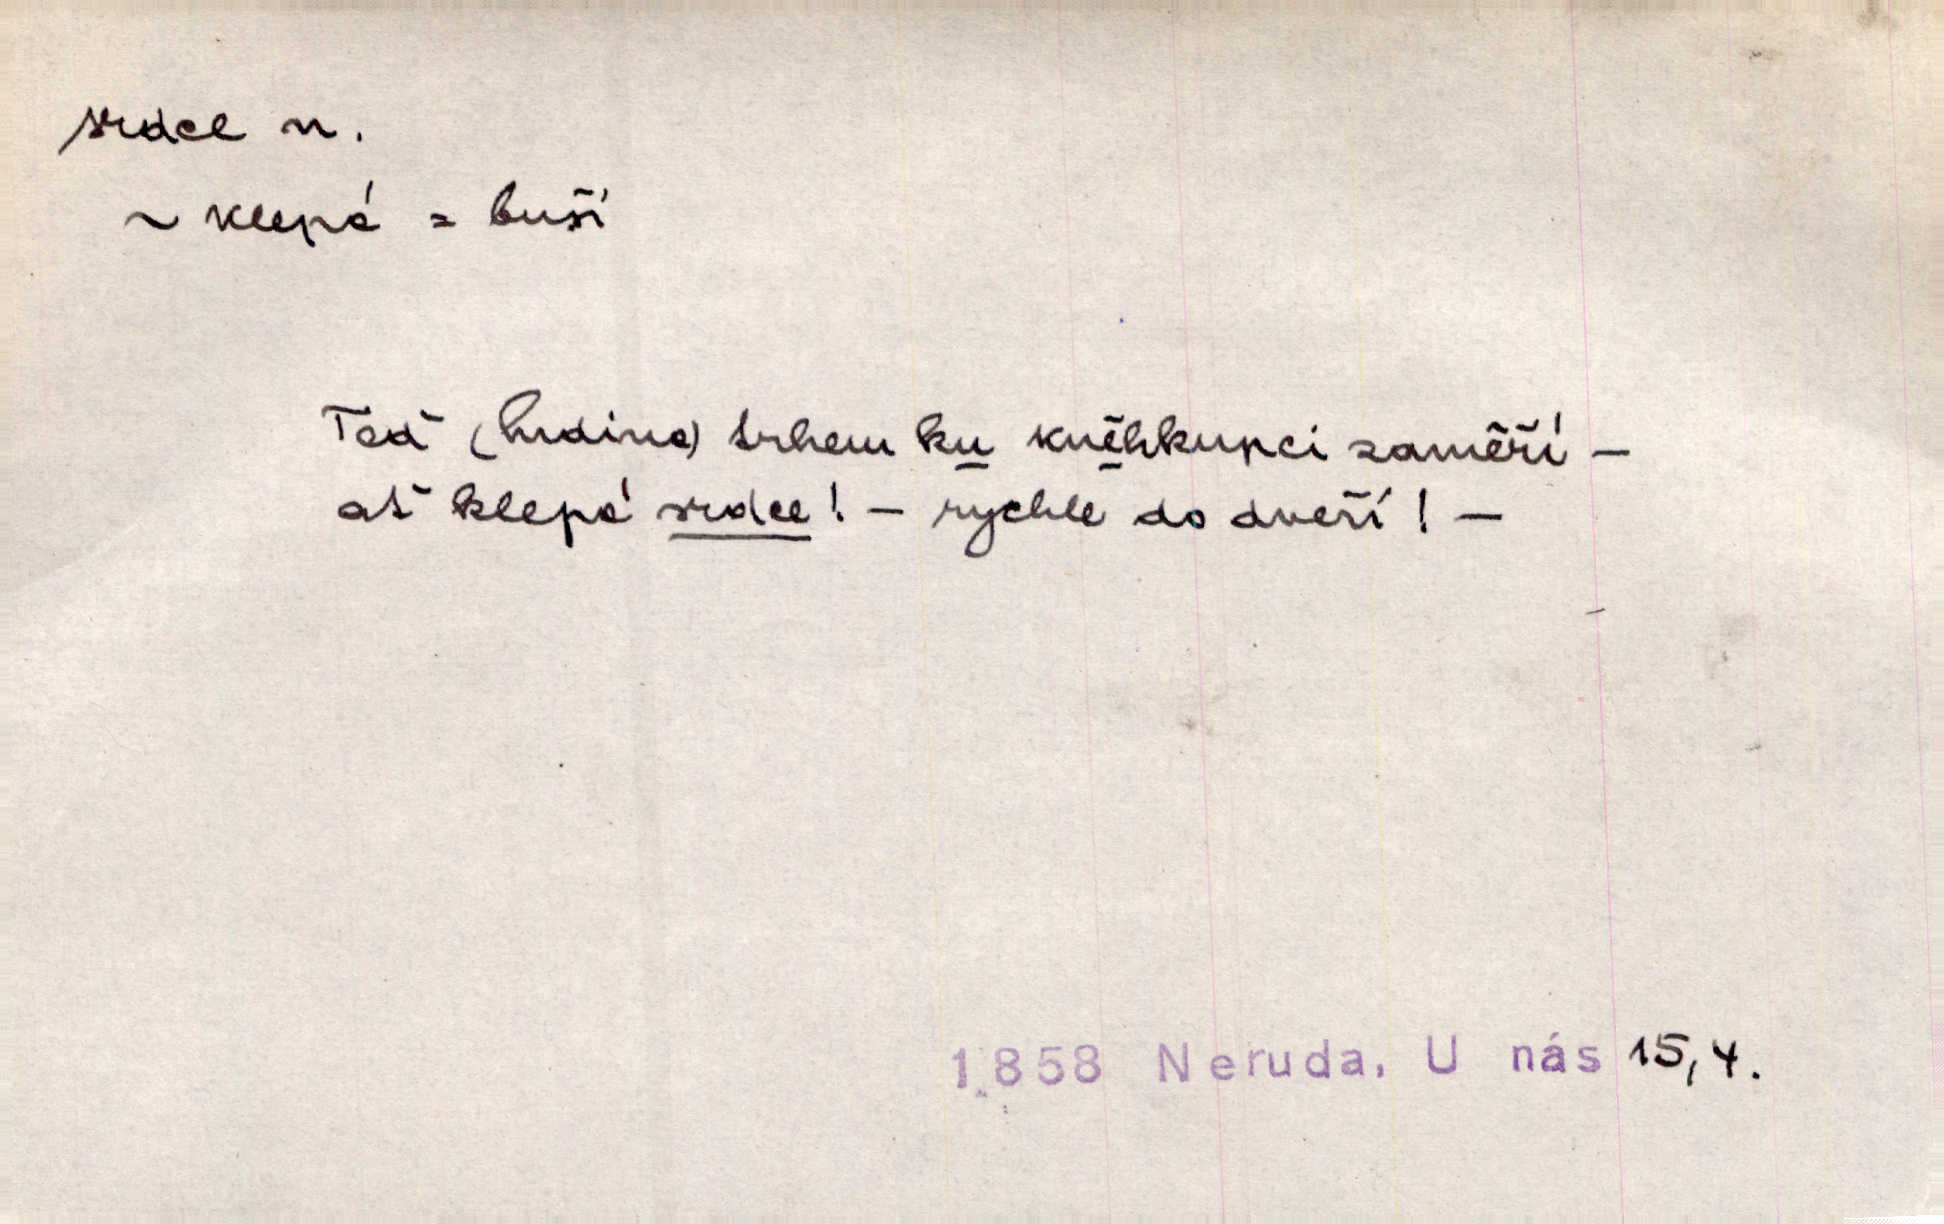 srdce n.
~ klepá = buší
Teď (hrdina) trhem ku kněhkupci zaměří –
ať klepá srdce! – rychle do dveří! –
1858 Neruda, U nás 15,4.